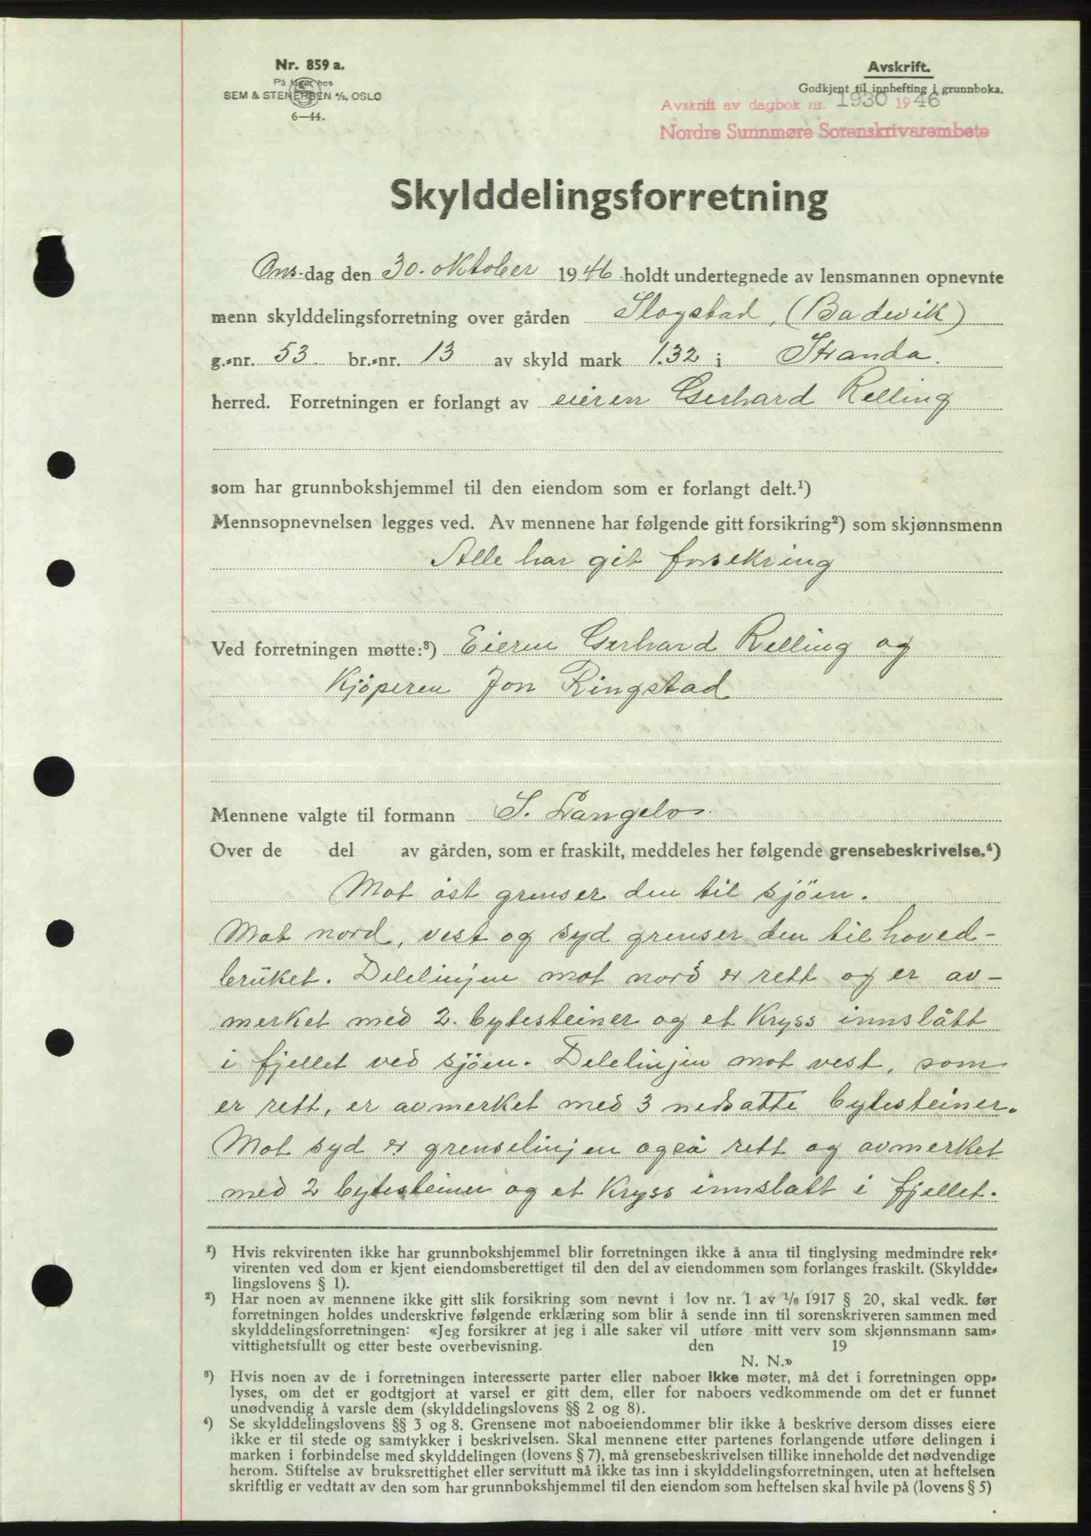 Nr. 859 a.
På lager hos
SEM & STENERSEN A/S, OSLO
6—44.
Avskrift.
Godkjent til innhefting i grunnboka.
Avskrift av dagbok nr. 1930 1946
Nordre Sunnmøre Sorenskrivarembete
Skylddelingsforretning
Ons-dag den 30. oktober 1946 holdt undertegnede av lensmannen opnevnte
menn skylddelingsforretning over gården Slogstad, (Badevik)
g.-nr. 53 br.-nr. 13 av skyld mark 1.32 i Stranda.
herred. Forretningen er forlangt av eieren Gerhard Relling
som har grunnbokshjemmel til den eiendom som er forlangt delt.¹)
Mennsopnevnelsen legges ved. Av mennene har følgende gitt forsikring²) som skjønnsmenn
Alle har git forsikring
Ved forretningen møtte:³) Eieren Gerhard Relling og
Kjöperen Jon Ringstad
Mennene valgte til formann S. Langelo
Over de del av gården, som er fraskilt, meddeles her følgende grensebeskrivelse.⁴)
Mot öst grenser den til sjöen.
Mot nord, vest og syd grenser den til hoved-
bruket. Delelinjen mot nord er rett og er av-
merket med 2. bytesteiner og et Kryss innslått
i fjellet ved sjöen. Delelinjen mot vest, som
er rett, er avmerket med 3 nedsatte bytesteiner.
Mot syd er grenselinjen også rett og avmerket
med 2 bytesteiner og et Kryss innslatt i fjellet.
¹) Hvis rekvirenten ikke har grunnbokshjemmel blir forretningen ikke å anta til tinglysing medmindre rek-
virenten ved dom er kjent eiendomsberettiget til den del av eiendommen som forlanges fraskilt. (Skyldde-
lingslovens § 1).
²) Har noen av mennene ikke gitt slik forsikring som nevnt i lov nr. 1 av 1/6 1917 § 20, skal vedk. før
forretningen holdes underskrive følgende erklæring som blir å sende inn til sorenskriveren sammen med
skylddelingsforretningen: «Jeg forsikrer at jeg i alle saker vil utføre mitt verv som skjønnsmann sam-
vittighetsfullt og etter beste overbevisning. den 19
N. N.»
³) Hvis noen av de i forretningen interesserte parter eller naboer ikke møter, må det i forretningen opp-
lyses, om det er godtgjort at varsel er gitt dem, eller for naboers vedkommende om det er funnet
unødvendig å varsle dem (skylddelingslovens §§ 2 og 8).
⁴) Se skylddelingslovens §§ 3 og 8. Grensene mot naboeiendommer blir ikke å beskrive dersom disses eiere
ikke er til stede og samtykker i beskrivelsen. Skal mennene etter partenes forlangende utføre delingen i
marken i forbindelse med skylddelingen (lovens § 7), må grensebeskrivelsen tillike inneholde det nødvendige
herom. Stiftelse av bruksrettighet eller servitutt må ikke tas inn i skylddelingsforretningen, uten at heftelsen
skriftlig er vedtatt av den som har grunnbokshjemmel til den eiendom som heftelsen skal hvile på (lovens § 5)